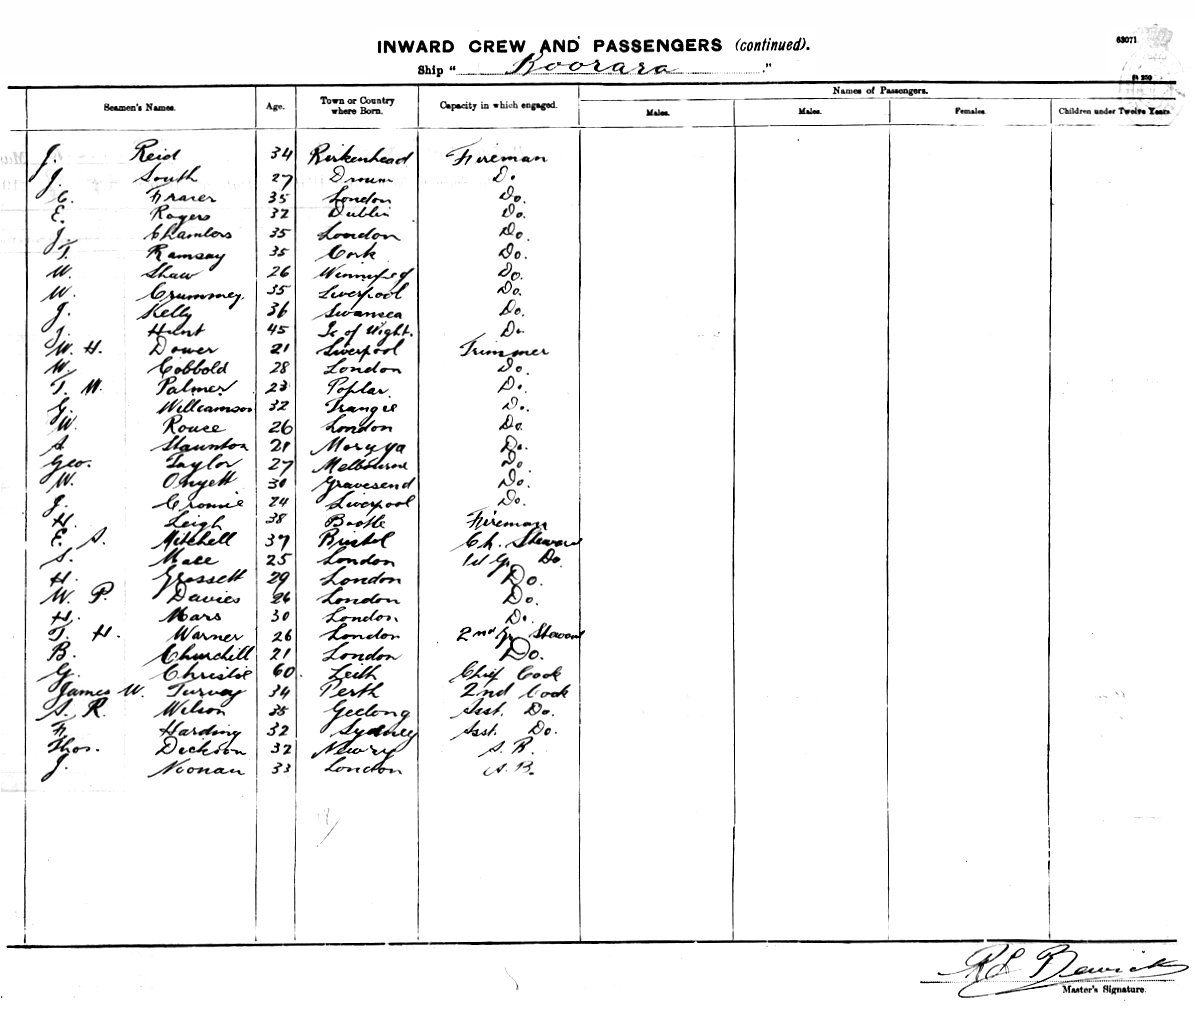 63071
INWARD CREW AND PASSENGERS (continued).
Ship "Boorara"
Seamen's Names. Age. Town or Country where Born. Capacity in which engaged. Names of Passengers.
Males. Males. Females. Children under Twelve Years
J. Reid 34 Birkenhead Fireman
J. South 27 Do.
C. Fraser 35 London Do.
E. Rogers 32 Dublin Do.
J. Chambers 35 London Do.
T. Ramsay 35 Cork Do.
W. Shaw 26 Winnipeg Do.
W. Crummey 35 Liverpool Do.
J. Kelly 36 Swansea Do.
J. Hunt 45 Is of Wight. Do.
W. H. Dower 21 Liverpool Trimmer
W. Cobbold 28 London Do.
T. W. Palmer 23 Poplar Do.
G. Williamson 32 Trangie Do.
W. Rouse 26 London Do.
A. Staunton 21 Moruya Do.
Geo. Taylor 27 Melbourne Do.
W. Onyett 30 Gravesend Do.
J. Cromie 24 Liverpool Do.
H. Leigh 38 Bootle Fireman
E. S. Mitchell 37 Bristol Ch. Steward
S. Mace 25 London 1st Gr. Do.
H. Grossett 29 London Do.
W. P. Davies 26 London Do.
H. Mars 30 London Do.
T. H. Warner 26 London 2nd Gr Steward
B. Churchill 21 London Do.
G. Christie 60 Leith Chief Cook
James W. Turvey 34 Perth 2nd Cook
S. R. Wilson 35 Geelong Asst. Do.
F. Harding 32 Sydney Asst. Do.
Thos. Dickson 32 Newry A. B.
J. Noonan 33 London A. B.
RS Bewick
Master's Signature.